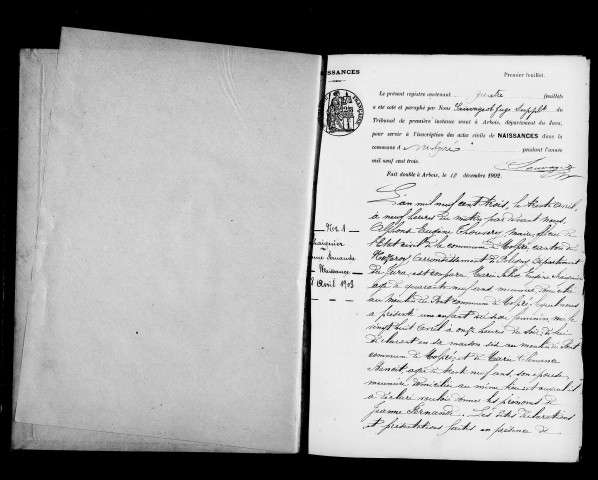 NAISSANCES
Premier feuillet.
Le présent registre contenant quatre feuillets
a été coté et paraphé par Nous Juge Suppl. du
Tribunal de première instance séant à Arbois, département du Jura,
pour servir à l'inscription des actes civils de NAISSANCES dans la
commune d pendant l'année
mil neuf cent trois.
Fait double à Arbois, le 10 décembre 1902.
L'an mil neuf cent trois, le trente avril,
à neuf heures du matin, par devant nous,
Eugène maire, officier de
l'Etat civil de la commune de canton de
Nozeroy, arrondissement de Poligny, département
du Jura, est comparu Marie Jules Eugène
âgé de quarante neuf ans, meunier, domicilié
au moulin du Pont commune de lequel nous
a présenté une enfant du sexe féminin, née le
vingt huit avril à onze heures du soir, de lui
déclarant en sa maison sise au moulin du Pont
commune de et de Marie
Benoit, âgée de trente neuf ans, son épouse,
meunière, domiciliée au même lieu et auquel il
a déclaré vouloir donner les prénoms de
Jeanne Fernande. Les dites déclarations
et présentations faites en présence de
No 1
Jeanne Fernande
Naissance
28 Avril 1903